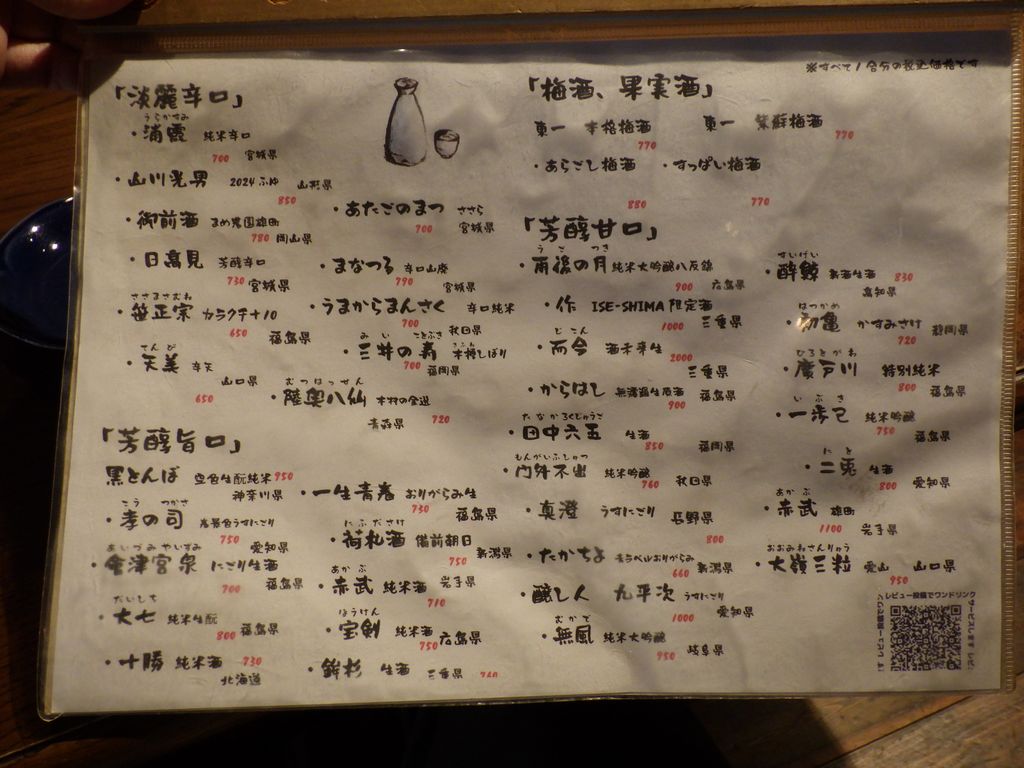 ※すべて1合分の税込価格です
「淡麗辛口」
うらかすみ
・浦霞 純米辛口
700 宮城県
・山川光男 2024ふゆ 山形県
850
・御前酒 まめ農園雄町
780 岡山県
・あたごのまつ ささら
700 宮城県
・日高見 芳醇辛口
730 宮城県
・まなつる 辛口山廃
790 宮城県
ささまさむね
・笹正宗 カラクチ+10
650 福島県
・うまからまんさく 辛口純米
700 秋田県
てんび
・天美 辛天
山口県
650
みいのことぶき
・三井の寿 本槽しぼり
700 福岡県
むつはっせん
・陸奥八仙
青森県 720
「芳醇旨口」
黒とんぼ 空色生酛純米 950
神奈川県
こう つかさ
・孝の司 うすにごり
750 愛知県
あいづみやいずみ
・會津宮泉 にごり生酒
700 福島県
だいしち
・大七 純米生酛
800 福島県
・十勝 純米酒 730
北海道
・一生青春 おりがらみ生
730 福島県
にふださけ
・荷札酒 備前朝日
750 新潟県
あかぶ
・赤武 純米酒 岩手県
710
ほうけん
・宝剣 純米酒
750 広島県
・鉾杉 生酒 三重県 740
「梅酒、果実酒」
東一 本格梅酒
770
東一 紫蘇梅酒
770
・あらごし梅酒
880
・すっぱい梅酒
770
「芳醇甘口」
うご つき
・雨後の月 純米大吟醸八反錦
900 広島県
・作 ISE-SHIMA 限定酒
1000 三重県
じこん
・而今 酒未来生
2000
三重県
・からはし 無濾過生原酒
900 福島県
たなかろくじゅうご
・田中六五 生酒
850 福岡県
もんがいふしゅつ
・門外不出 純米吟醸
760 秋田県
・真澄 うすにごり 長野県
800
・たかちよ 青ラベルおりがらみ
660 新潟県
・醸し人 九平次 うすにごり
1000 愛知県
むかで
・無風 純米大吟醸
950 岐阜県
すいげい
・酔鯨 新酒生酒 830
高知県
はつかめ
・初亀 かすみさけ 静岡県
720
ひろとがわ
・廣戸川 特別純米
800 福島県
いぶき
・一歩己 純米吟醸
750 福島県
にと
・二兎 生酒
800 愛知県
あかぶ
・赤武 雄町
1100 岩手県
おおみねさんりゅう
・大嶺三粒 愛山 山口県
950
レビュー投稿でワンドリンク
サービスします